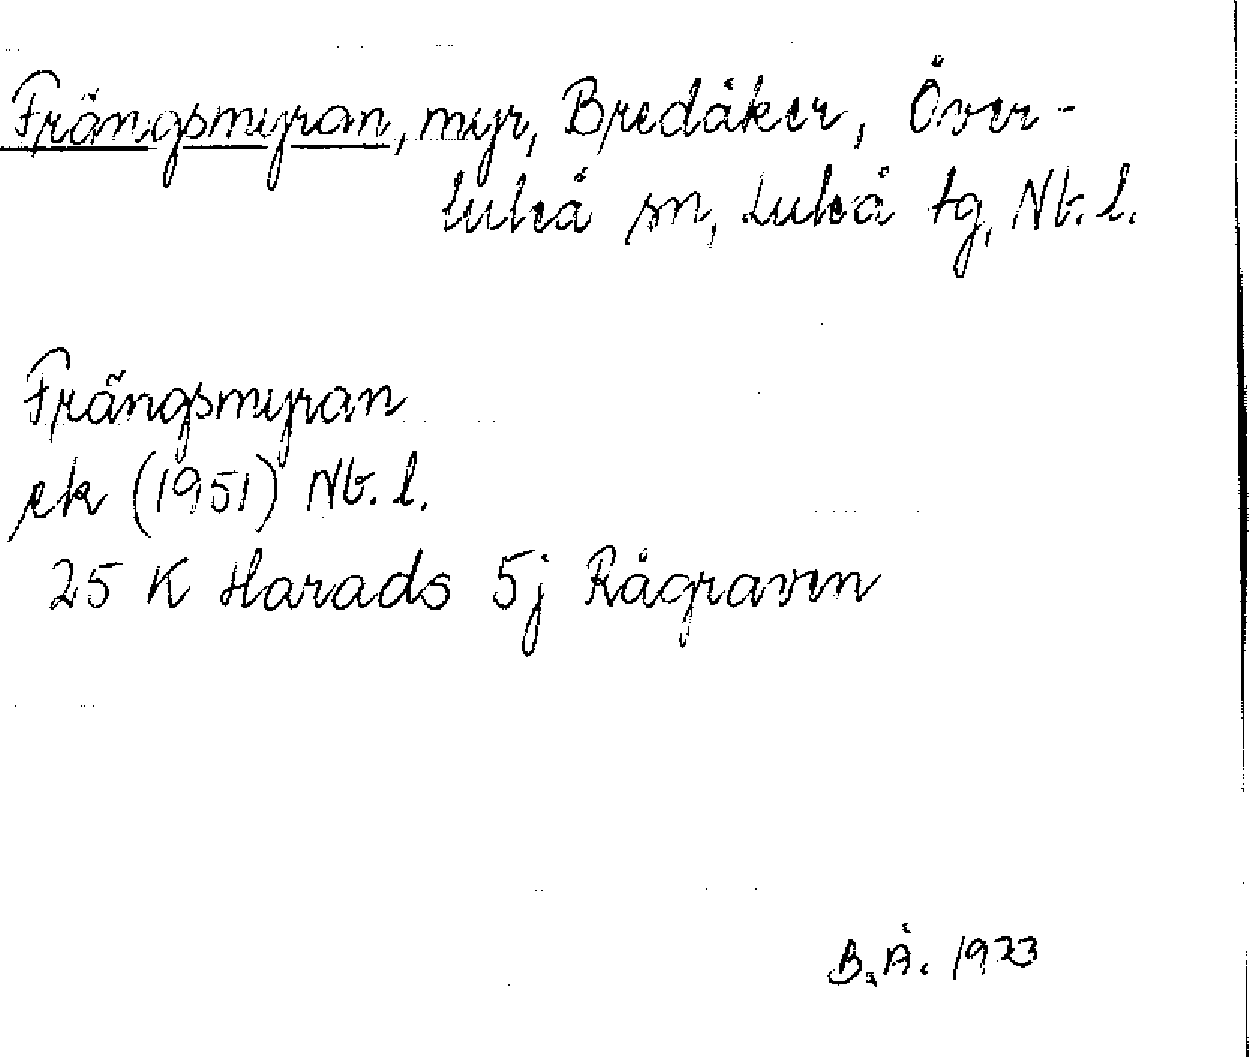 Frängsmyran, myr, Bredåker, Över-
luleå sn, Luleå tg, Nb. l.
Frängsmyran
ek (1951) Nb. l.
25 K Harads 5j Rågraven
B.Å. 1973